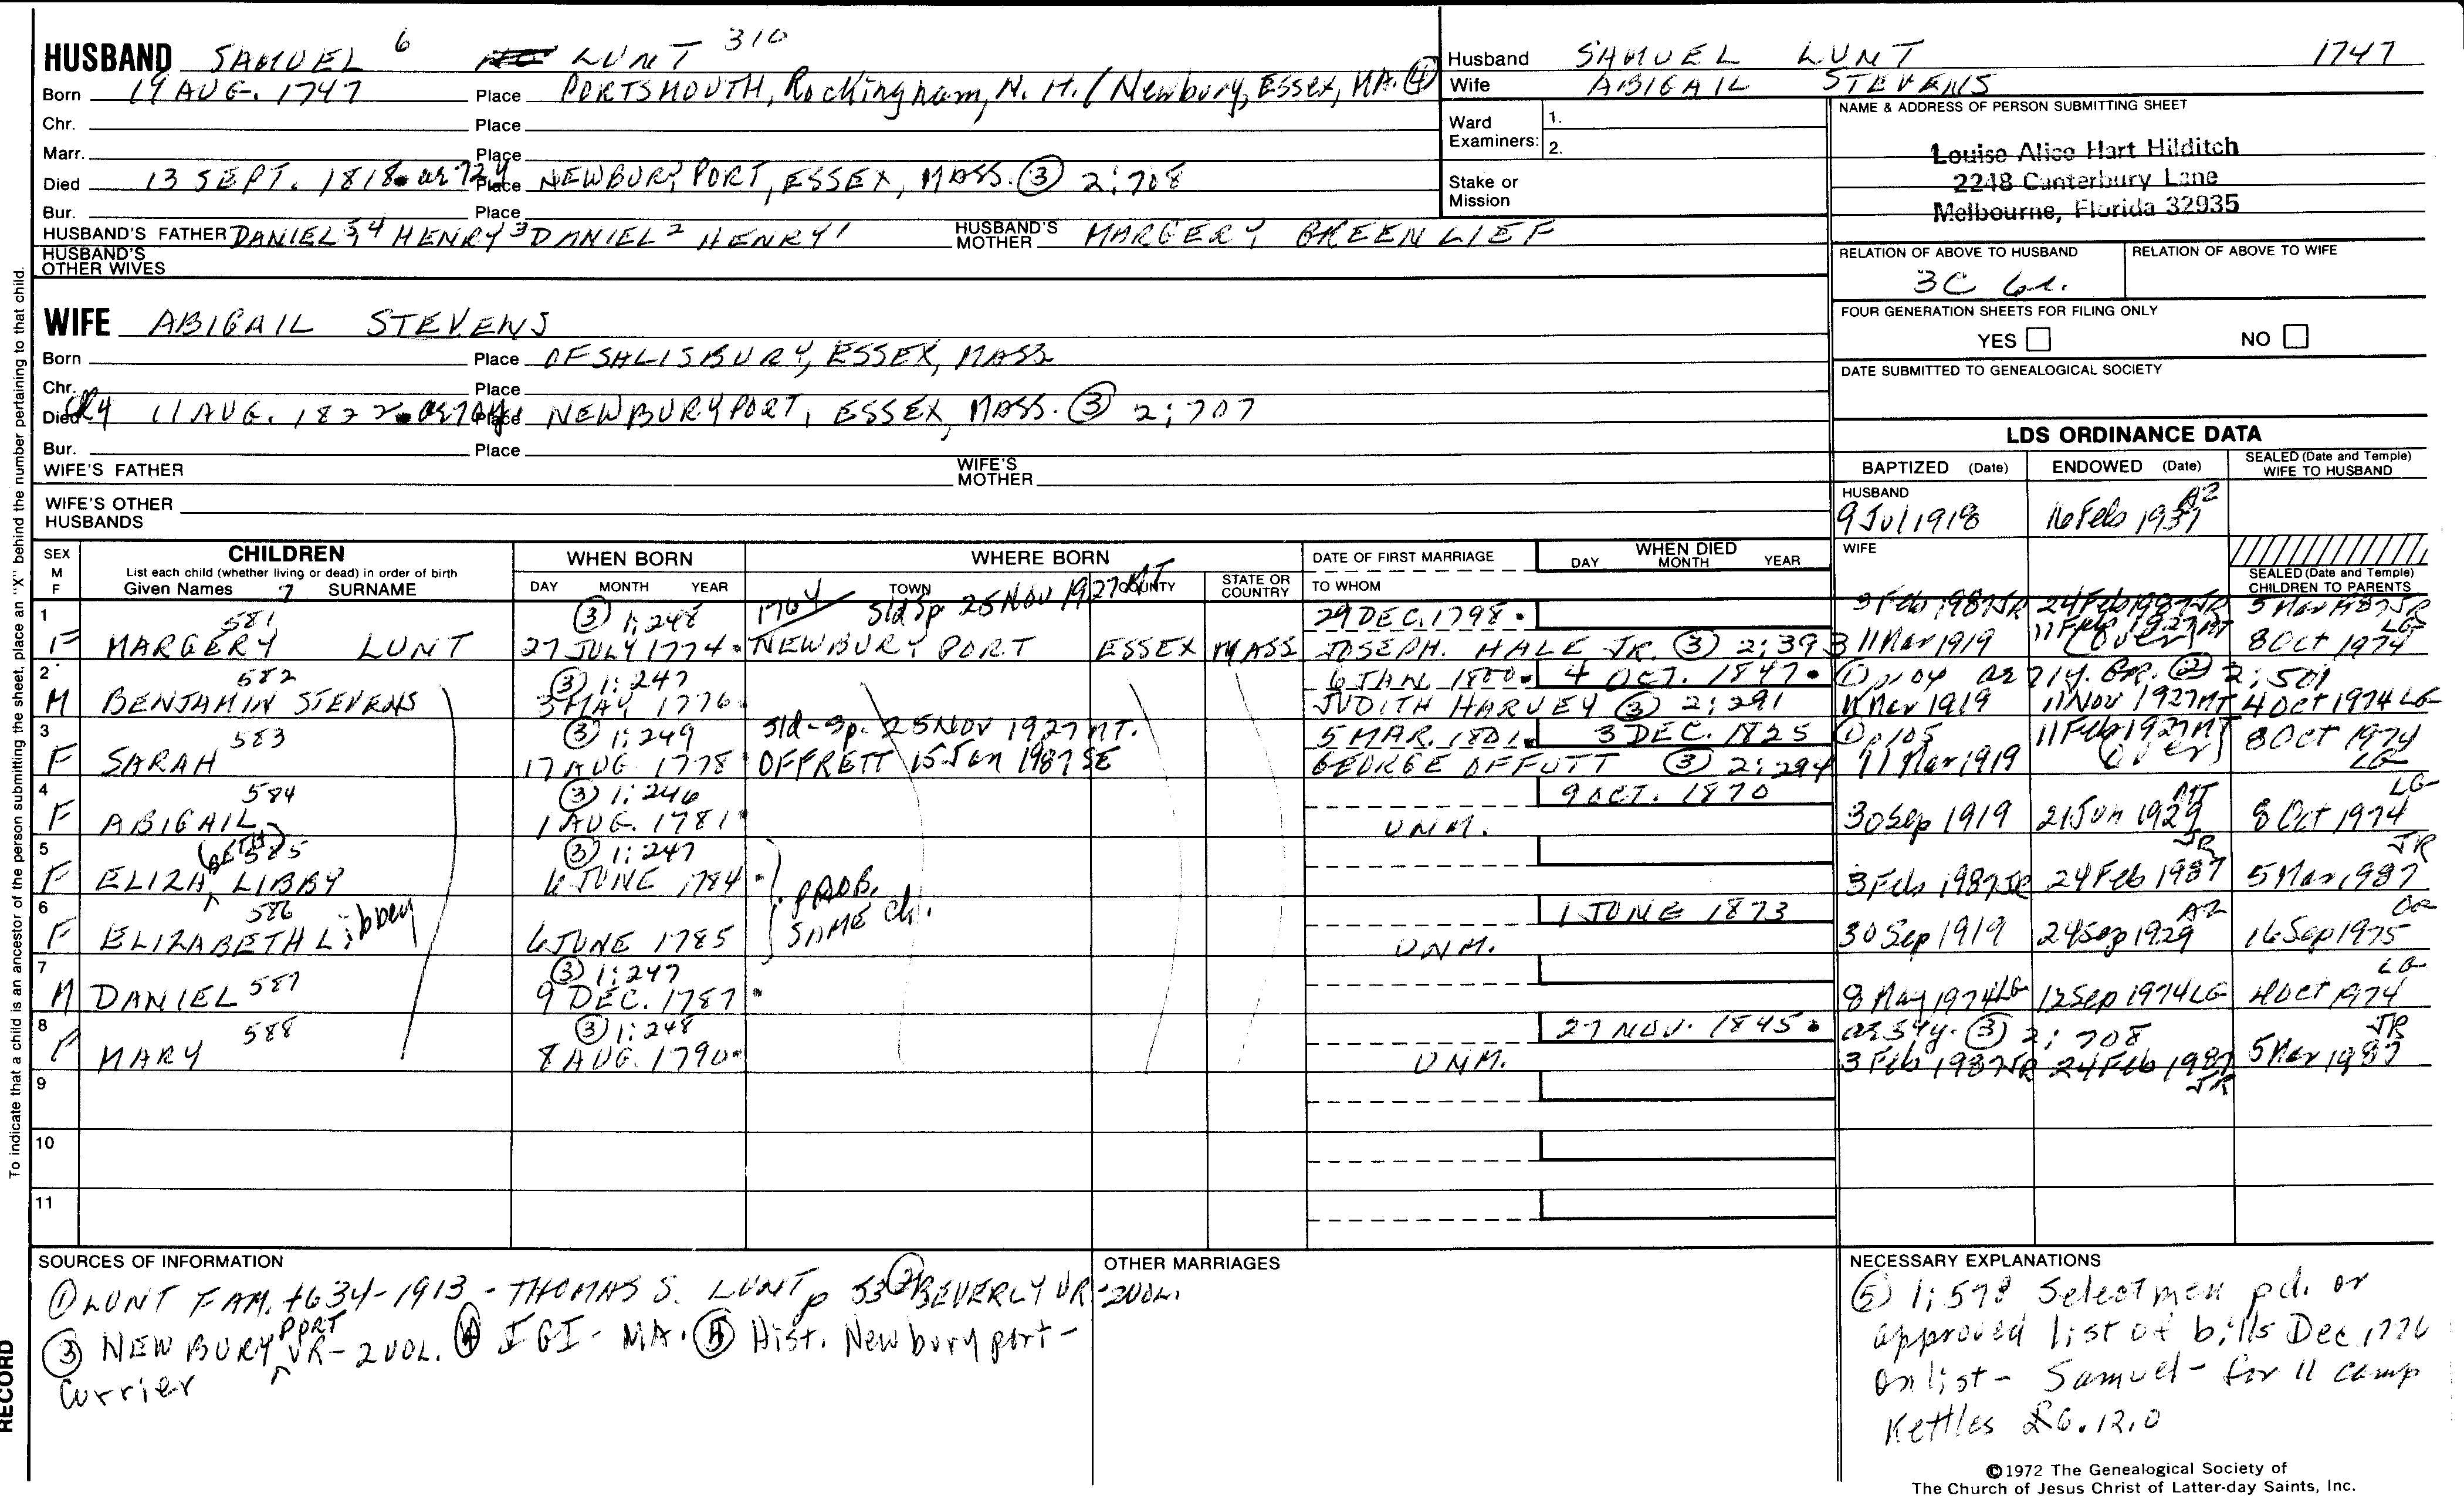 HUSBAND SAMUEL 6 LUNT 310
Born 19 AUG. 1747 Place PORTSMOUTH, Rockingham, N. H. / Newbury, Essex, MA. (4)
Chr. Place
Marr. Place
Died 13 SEPT. 1818 • as 72 y Place NEWBURYPORT, ESSEX, MASS. (3) 2:708
Bur. Place
HUSBAND'S FATHER DANIEL 5, 4 HENRY 3 DANIEL 2 HENRY 1 HUSBAND'S MOTHER MARGERY GREENLIEF
HUSBAND'S OTHER WIVES
WIFE ABIGAIL STEVENS
Born Place OF SALISBURY, ESSEX, MASS
Chr. Place
Died 11 AUG. 1822 • Place NEWBURYPORT, ESSEX, MASS. (3) 2:707
Bur. Place
WIFE'S FATHER WIFE'S MOTHER
WIFE'S OTHER HUSBANDS
Husband SAMUEL LUNT 1747
Wife ABIGAIL STEVENS
Ward Examiners: 1.
2.
Stake or Mission
NAME & ADDRESS OF PERSON SUBMITTING SHEET
Louise Alice Hart Hilditch
2248 Canterbury Lane
Melbourne, Florida 32935
RELATION OF ABOVE TO HUSBAND RELATION OF ABOVE TO WIFE
3C
FOUR GENERATION SHEETS FOR FILING ONLY
YES NO
DATE SUBMITTED TO GENEALOGICAL SOCIETY
LDS ORDINANCE DATA
BAPTIZED (Date) ENDOWED (Date) SEALED (Date and Temple) WIFE TO HUSBAND
HUSBAND
9 Jul 1918 16 Feb 1937 AZ
WIFE
3 Feb 1987 JR 24 Feb 1987 JR 5 Mar 1987 JR
SEALED (Date and Temple) CHILDREN TO PARENTS
SEX M F CHILDREN WHEN BORN WHERE BORN DATE OF FIRST MARRIAGE WHEN DIED
List each child (whether living or dead) in order of birth
Given Names 7 SURNAME DAY MONTH YEAR TOWN COUNTY STATE OR COUNTRY TO WHOM DAY MONTH YEAR
1 581 (3) 1:248 1764 Sld Sp 25 NOV 1927 29 DEC. 1798 •
F MARGERY LUNT 27 JULY 1774 • NEWBURY PORT ESSEX MASS JOSEPH. HALE JR. (3) 2:393 11 Mar 1919 11 Feb 1927 MT (over) 8 Oct 1974 LG
2 582 (3) 1:247 6 JAN 1800 • 4 OCT. 1847 • (1) p 104 as 71 y. BR. (2) 2:501
M BENJAMIN STEVENS 3 MAY 1776 JUDITH HARVEY (3) 2:291 11 Mar 1919 11 Nov 1927 MT 4 Oct 1974 LG
3 583 (3) 1:249 Sld-Sp. 25 NOV 1927 MT. 5 MAR. 1801 • 3 DEC. 1825 (1) p 105
F SARAH 17 AUG 1778 OFFRETT 15 Jan 1987 SE GEORGE OFFUTT (3) 2:294 11 Mar 1919 11 Feb 1927 MT (over) 8 Oct 1974 LG
4 584 (3) 1:246 9 OCT. 1870
F ABIGAIL 1 AUG. 1781 • UNM. 30 Sep 1919 21 Jun 1929 8 Oct 1974 LG
5 (BETH) 585 (3) 1:247
F ELIZA LIBBY 6 JUNE 1784 • PROB. 3 Feb 1987 JR 24 Feb 1987 JR 5 Mar 1987 JR
6 586 SAME ch. 1 JUNE 1873
F ELIZABETH Libbey 6 JUNE 1785 UNM. 30 Sep 1919 24 Sep 1929 AZ 16 Sep 1975 OR
7 587 (3) 1:247
M DANIEL 9 DEC. 1787 • 8 May 1974 LG 12 Sep 1974 LG 4 Oct 1974 LG
8 588 (3) 1:248 27 NOV. 1845 • as 54 y. (3) 2:708
F MARY 8 AUG. 1790 • UNM. 3 Feb 1987 JR 24 Feb 1987 JR 5 Mar 1987 JR
9
10
11
SOURCES OF INFORMATION
(1) LUNT FAM. 1634-1913 - THOMAS S. LUNT p 53 (2) BEVERLY VR - 2 VOL.
(3) NEWBURYPORT VR - 2 VOL. (4) IGI - MA. (5) Hist. Newburyport -
Currier
OTHER MARRIAGES
NECESSARY EXPLANATIONS
(5) 1:578 Selectmen pd. or
approved list of bills Dec 1776
On list - Samuel - for 11 camp
Kettles £6.12.0
©1972 The Genealogical Society of
The Church of Jesus Christ of Latter-day Saints, Inc.
To indicate that a child is an ancestor of the person submitting the sheet, place an "X" behind the number pertaining to that child.
RECORD